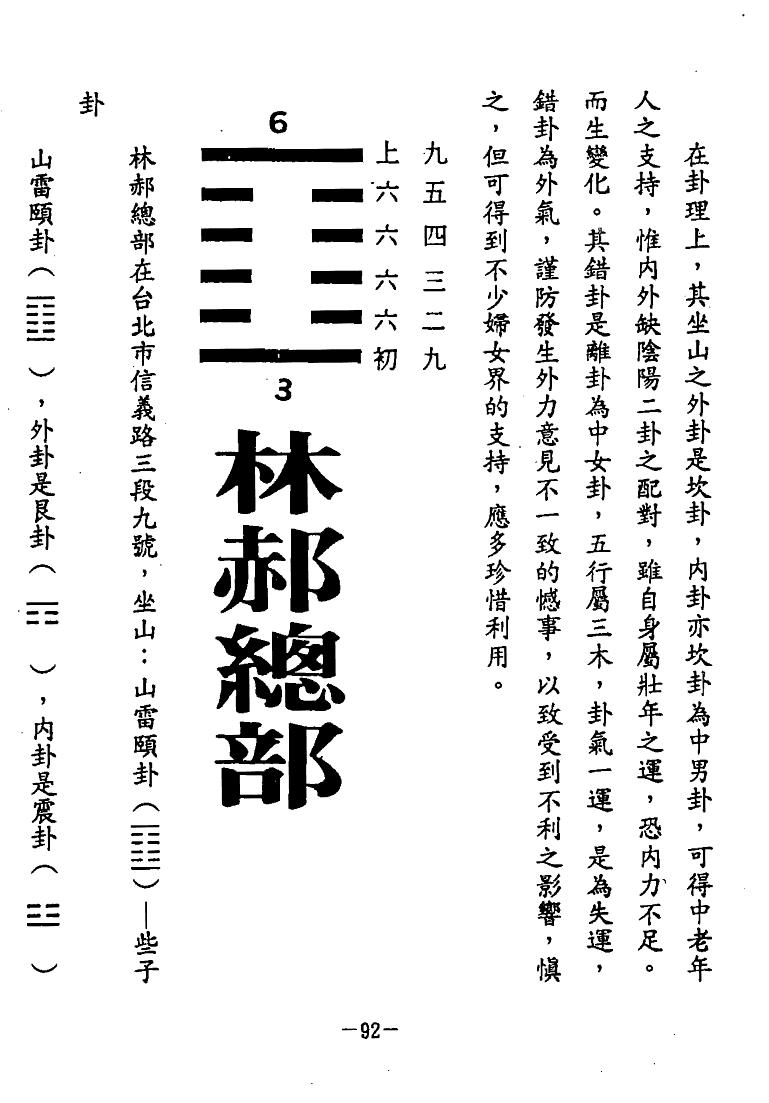 在卦理上，其坐山之外卦是坎卦，內卦亦坎卦為中男卦，可得中老年
人之支持，惟内外缺陰陽二卦之配對，雖自身屬壯年之運，恐内力不足。
而生變化。其錯卦是離卦為中女卦，五行屬三木，卦氣一運，是為失運，
錯卦為外氣，謹防發生外力意見不一致的憾事，以致受到不利之影響，慎
之，但可得到不少婦女界的支持，應多珍惜利用。
九五四三二九
上六六六六初
6
3
林郝總部
林郝總部在台北市信義路三段九號，坐山：山雷頤卦（䷚）—些子
卦
山雷頤卦（䷚），外卦是艮卦（☶），内卦是震卦（☳）
—92—